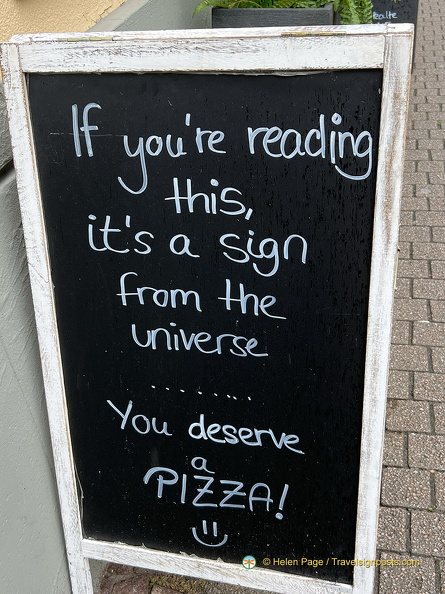 If you're reading
this,
it's a sign
from the
universe
.........
You deserve
a
PIZZA!
© Helen Page / Travelsignposts.com